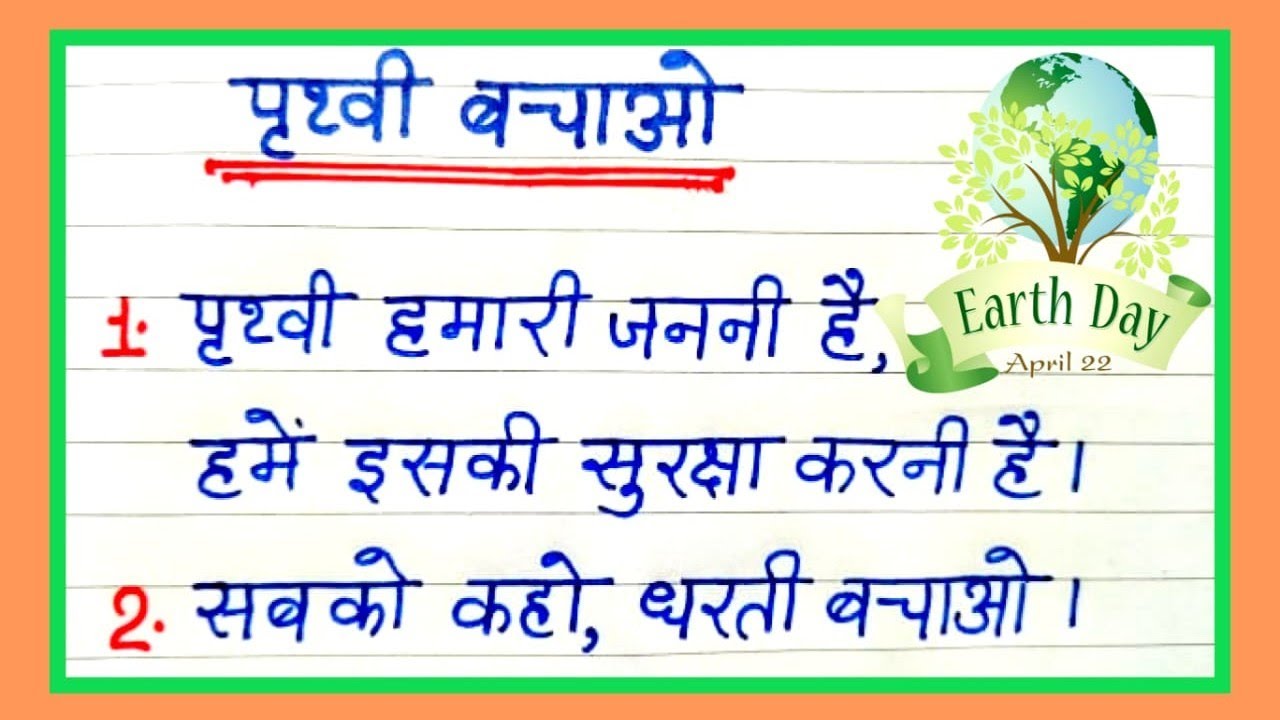 पृथ्वी बचाओ
1. पृथ्वी हमारी जननी है,
हमें इसकी सुरक्षा करनी है।
2. सबको कहो, धरती बचाओ।
Earth Day
April 22